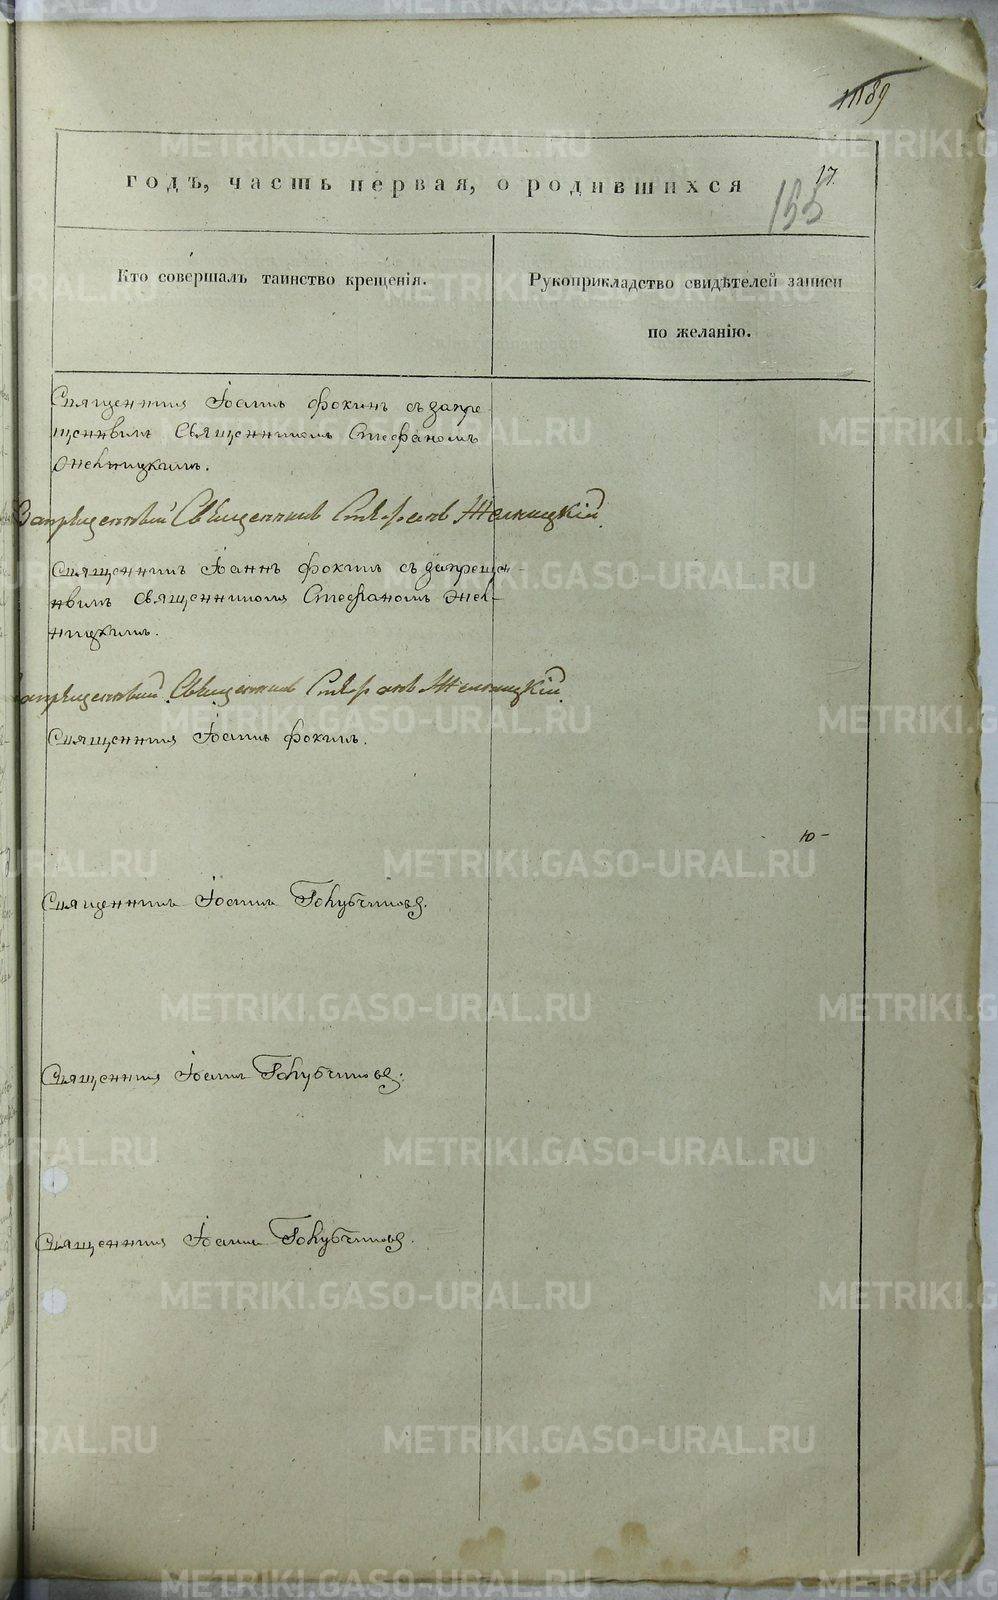 1189
17.
155
годъ, часть первая, о родившихся
Кто совершалъ таинство крещенія.
Рукоприкладство свидѣтелей записи
по желанію.
Священникъ Іоаннъ Фокинъ съ запре-
щеннымъ Священникомъ Стефаномъ
Желницкимъ.
Запрещенный Священникъ Стефанъ Желницкій.
Священникъ Іоаннъ Фокинъ съ запрещен-
нымъ Священникомъ Стефаномъ Жел-
ницкимъ.
Запрещенный Священникъ Стефанъ Желницкій.
Священникъ Іоаннъ Фокинъ.
Ю-
Священникъ Іоаннъ Голубчиковъ.
Священникъ Іоаннъ Голубчиковъ.
Священникъ Іоаннъ Голубчиковъ.
METRIKI.GASO-URAL.RU